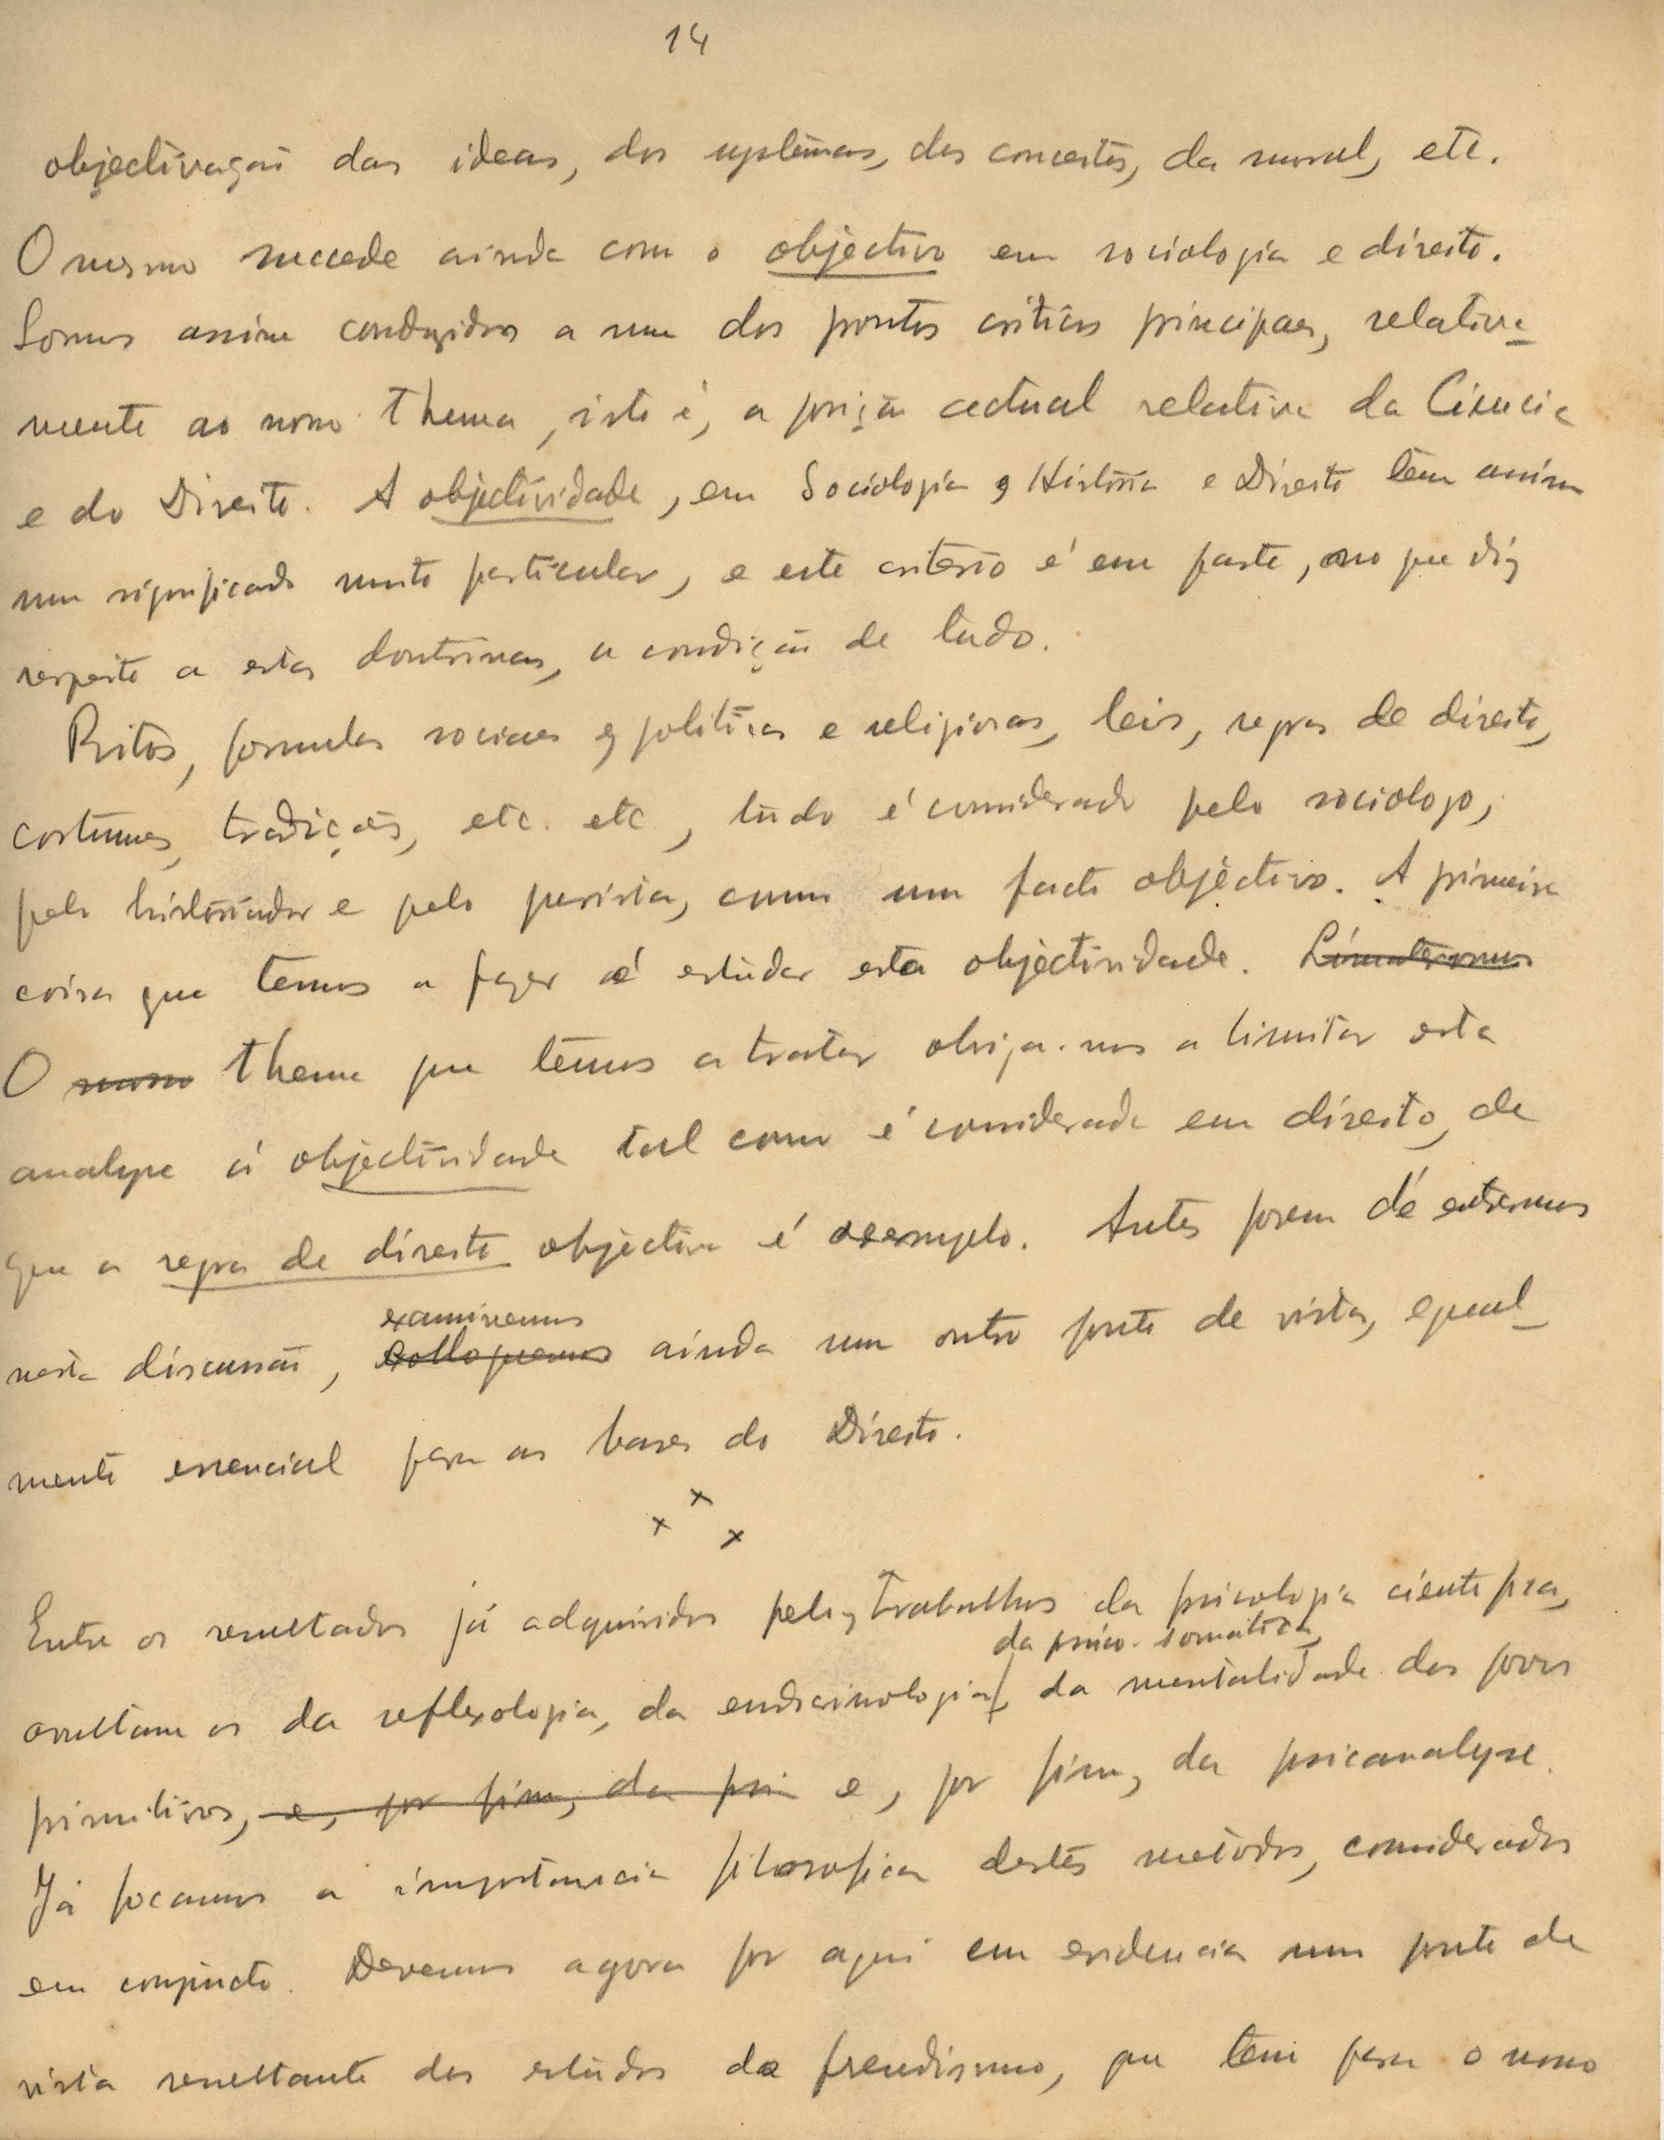 14
objectivação das ideas, dos systemas, dos conceitos, da moral, etc.
O mesmo succede ainda com o objectivo em sociologia e direito.
Somos assim conduzidos a um dos pontos criticos principaes, relativa-
mente ao nosso thema, isto é, a posição actual relativa da Ciencia
e do Direito. A objectividade, em Sociologia, Historia e Direito tem assim
um significado muito particular, e este criterio é em parte, no que diz
respeito a estas doutrinas, a condição de tudo.
Ritos, formulas sociaes, politicas e religiosas, leis, regras de direito,
costumes, tradições, etc. etc, tudo é considerado pelo sociologo,
pelo historiador e pelo jurista, como um facto objectivo. A primeira
coisa que temos a fazer é estudar esta objectividade. Limitaremos
O nosso thema que temos a tratar obriga-nos a limitar esta
analyse á objectividade tal como é considerada em direito, de
que a regra de direito objectiva é exemplo. Antes porem de entrarmos
nesta discussão, examinemos
colloquemos ainda um outro ponto de vista, egual-
mente essencial para as bases do Direito.
x x x
Entre os resultados já adquiridos pelos trabalhos da psicologia cientifica,
da psico-somatica,
avultam os da reflexologia, da endocrinologia, da mentalidade dos povos
primitivos, e, por fim, da psi e, por fim, da psicanalyse.
Já focamos a importancia filosofica destes metodos, considerados
em conjuncto. Devemos agora pôr aqui em evidencia um ponto de
vista resultante dos estudos do freudismo, que tem para o nosso